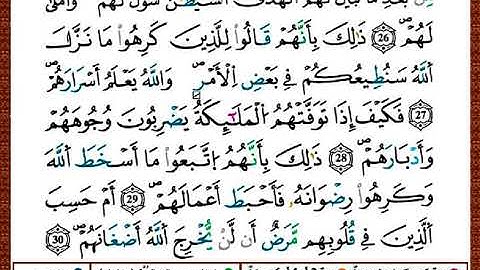 مِّنۢ بَعْدِ مَا تَبَيَّنَ لَهُمُ اُ۬لْهُدَى اَ۬لشَّيْطَٰنُ سَوَّلَ لَهُمْ وَأَمْلَىٰ
لَهُمْۖ 26 ذَٰلِكَ بِأَنَّهُمْ قَالُوا۟ لِلَّذِينَ كَرِهُوا۟ مَا نَزَّلَ
اَ۬للَّهُ سَنُطِيعُكُمْ فِي بَعْضِ اِ۬لْأَمْرِۖ وَاللَّهُ يَعْلَمُ أَسْرَارَهُمْۖ
27 فَكَيْفَ إِذَا تَوَفَّتْهُمُ اُ۬لْمَلَٰٓئِكَةُ يَضْرِبُونَ وُجُوهَهُمْ
وَأَدْبَٰرَهُمْۖ 28 ذَٰلِكَ بِأَنَّهُمُ اُ۪تَّبَعُوا۟ مَا أَسْخَطَ اَ۬للَّهَ
وَكَرِهُوا۟ رِضْوَٰنَهُۥ فَأَحْبَطَ أَعْمَٰلَهُمْۖ 29 أَمْ حَسِبَ
اَ۬لَّذِينَ فِي قُلُوبِهِم مَّرَضٌ أَن لَّنْ يُّخْرِجَ اَ۬للَّهُ أَضْغَٰنَهُمْۖ 30